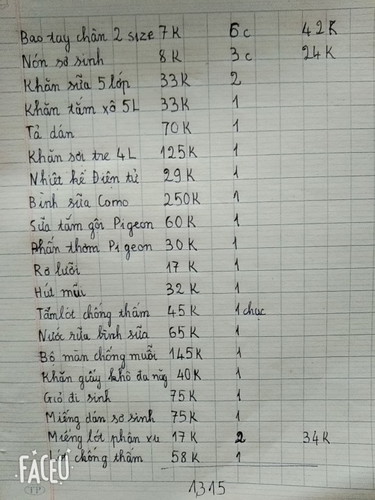 Bao tay chân 2 size 7K 6c 42K
Nón sơ sinh 8K 3c 24K
Khăn sữa 5 lớp 33K 2
Khăn tắm xô 5L 33K 1
Tả dán 70K 1
Khăn sợi tre 4L 125K 1
Nhiệt kế Điện tử 29K 1
Bình sữa Como 250K 1
Sữa tắm gội Pigeon 60K 1
Phấn thơm Pigeon 30K 1
Rơ lưỡi 17K 1
Hút mũi 32K 1
Tấm lót chống thấm 45K 1 chục
Nước rửa bình sữa 65K 1
Bộ màn chống muỗi 145K 1
Khăn giấy khô đa năng 40K 1
Giỏ đi sinh 75K 1
Miếng dán sơ sinh 75K 1
Miếng lót phân xu 17K 2 34K
chống thấm 58K 1
1315
FACEU